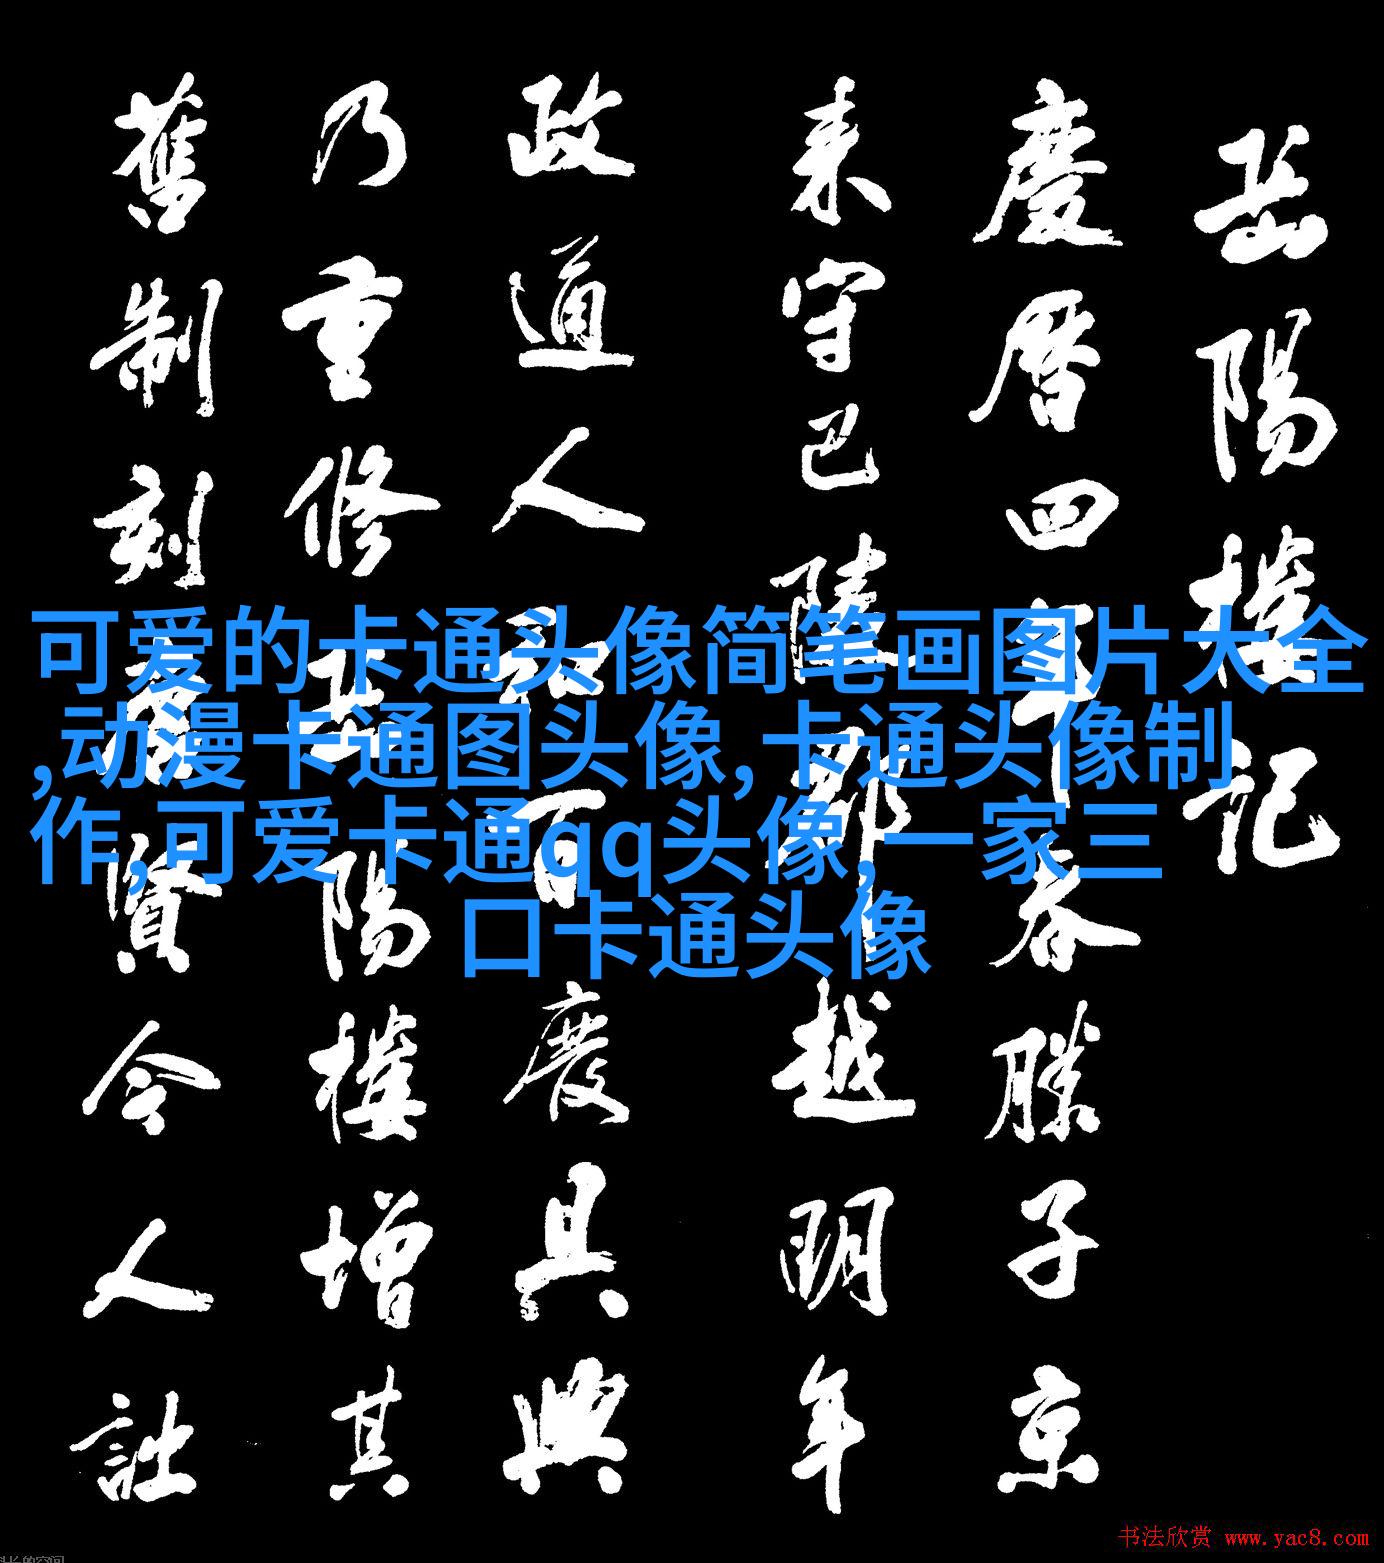 岳陽樓記
慶曆四年春滕子京
来守巴陵郡越明年
政通人和百廢具興
乃重修岳陽樓增其
舊制刻唐賢今人詩
可爱的卡通头像简笔画图片大全
,动漫卡通图头像,卡通头像制
作,可爱卡通qq头像,一家三
口卡通头像
书法欣赏 www.yac8.com